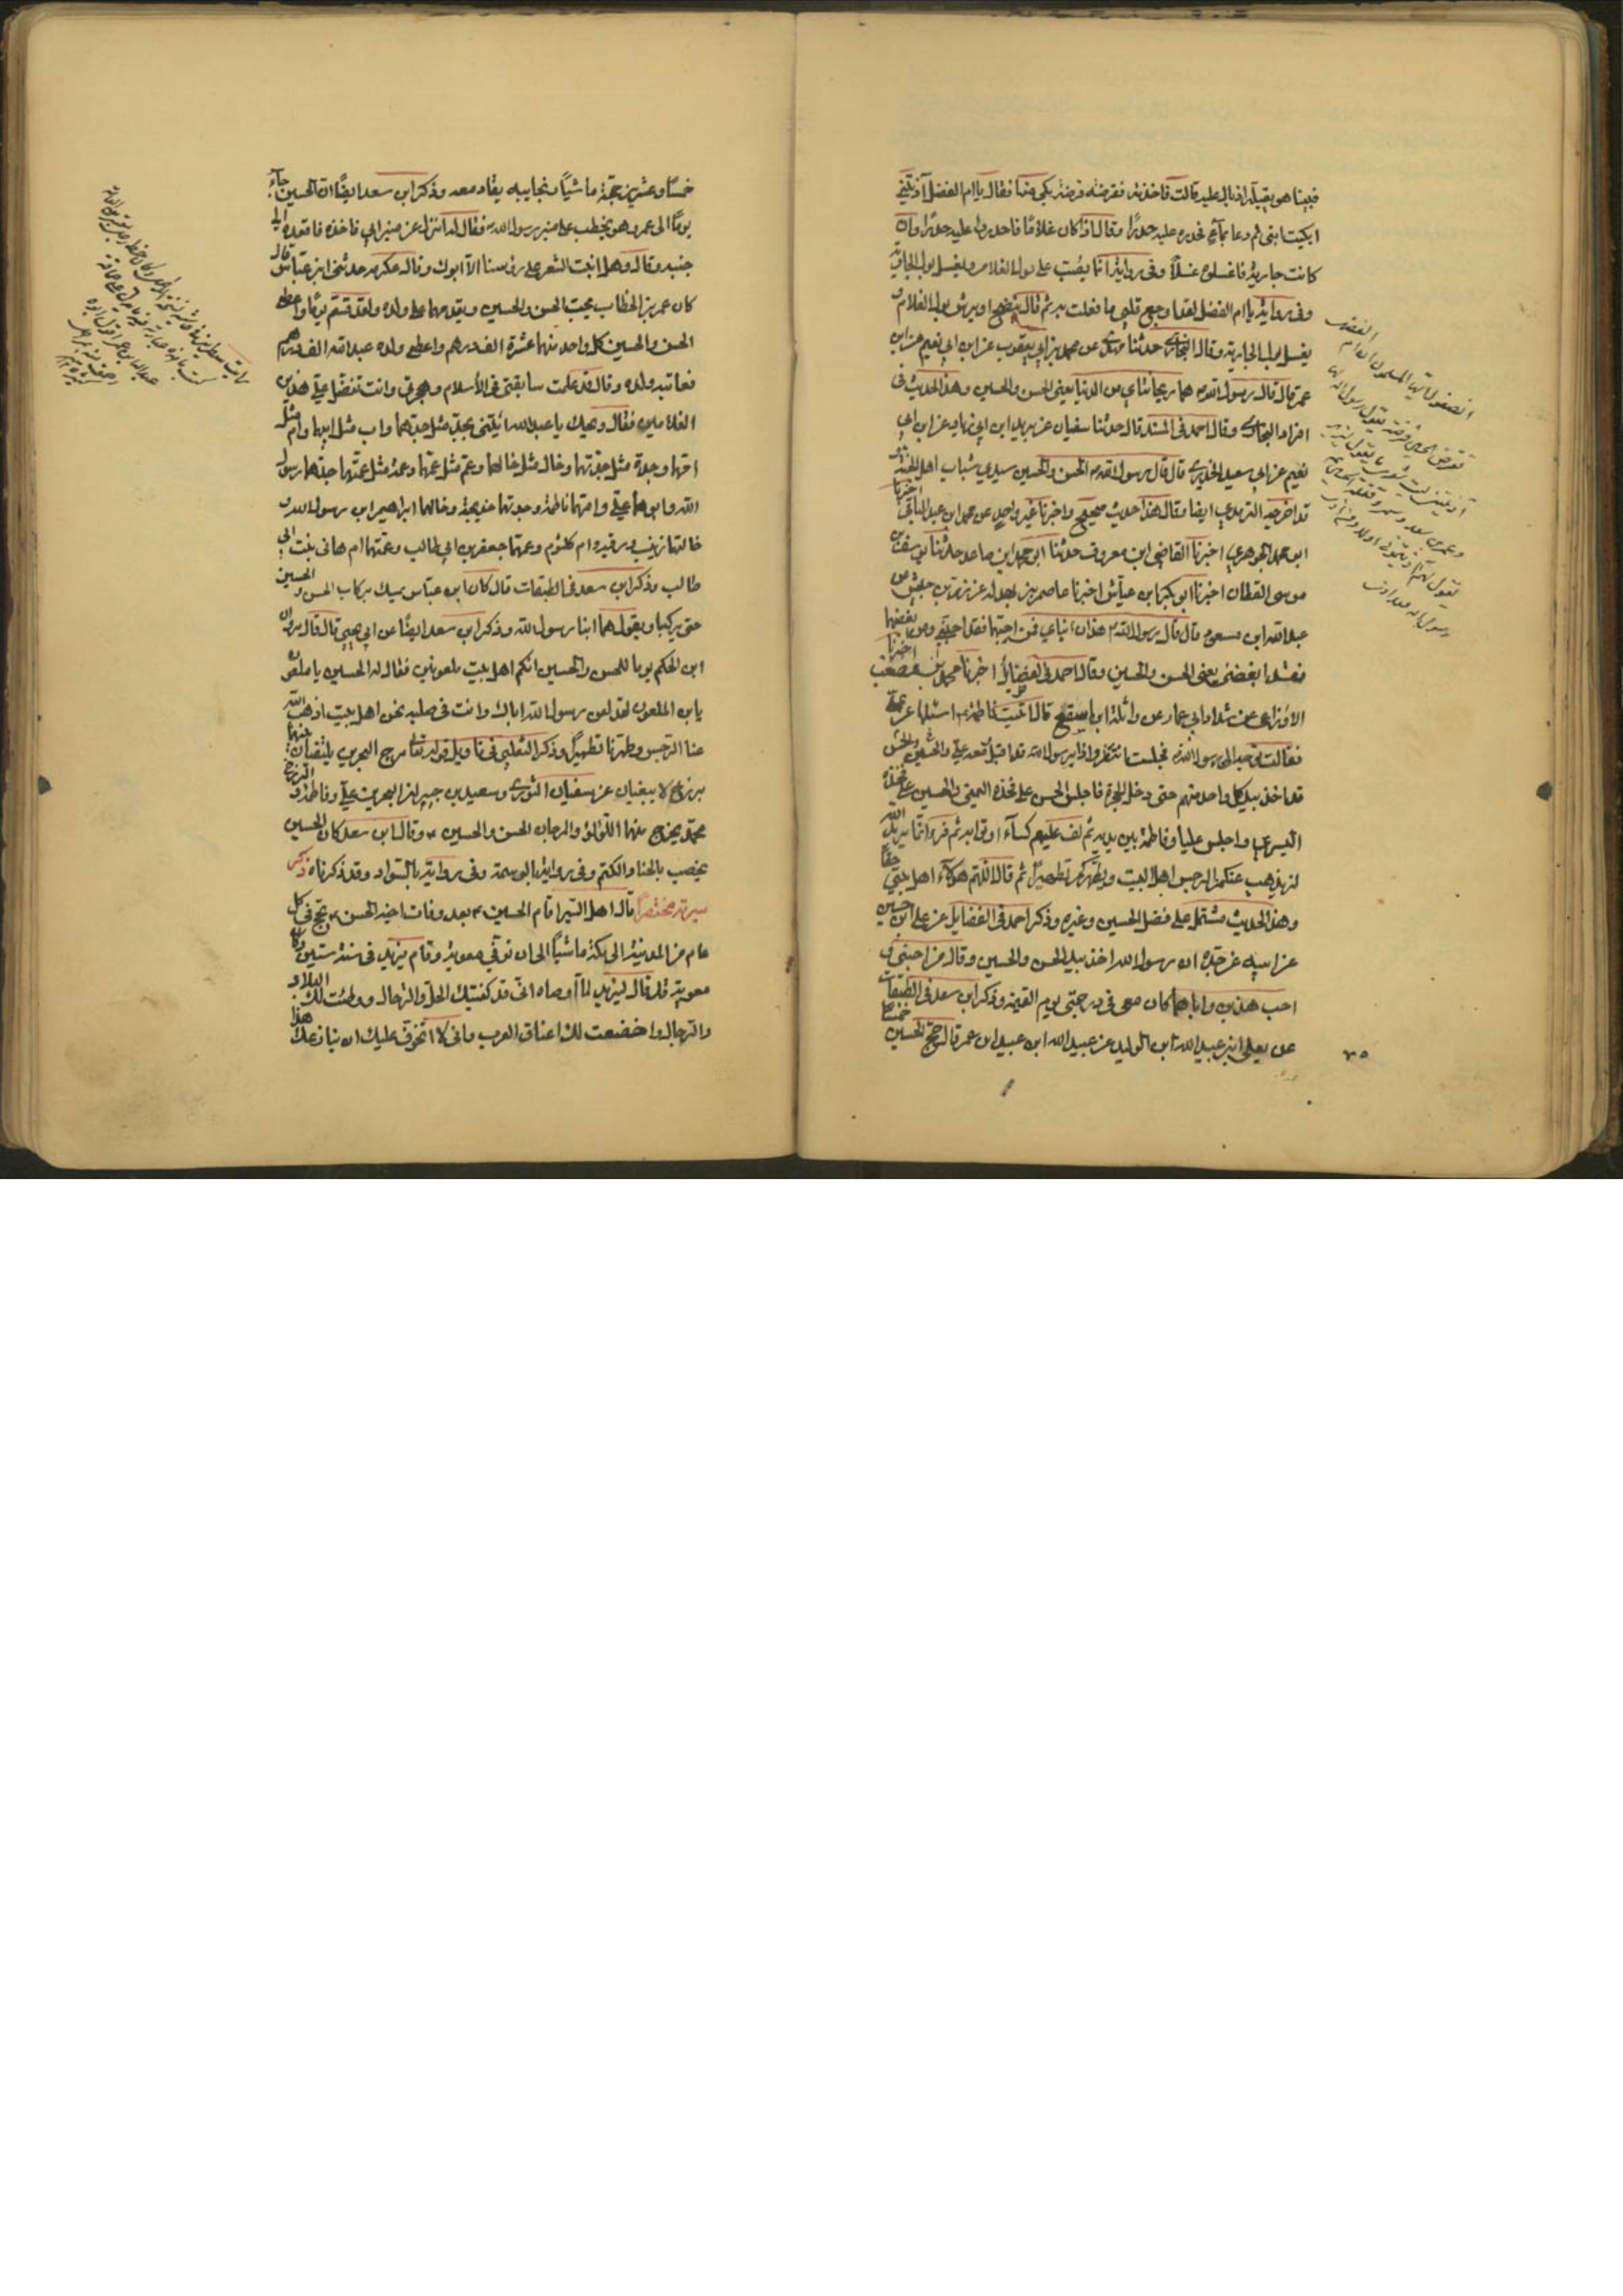 فبينا هو يقبله اذ بال عليه قالت فاخذته فقرصته قرصة بكى منها فقال يا ام الفضل آذيتني
ابكيت ابني ثم دعا بماء فحدره عليه حدرًا وقال اذا كان غلامًا فاحدروا عليه حدرًا وان
كانت جارية فاغسلوه غسلًا وفي رواية انما يصب على بول الغلام ويغسل بول الجارية
وفي رواية يا ام الفضل لقد اوجع قلبي ما فعلت به ثم قال ينضح او يرش بول الغلام و
يغسل بول الجارية وقال البخاري حدثنا عن محمد بن ابي يعقوب عن ابن ابي نعيم عن ابن
عمر قال قال رسول الله هما ريحانتاي من الدنيا يعني الحسن والحسين وهذا الحديث في
افراد البخاري وقال احمد في المسند قال حدثنا سفيان عن يزيد ابن ابي زياد عن ابن ابي
نعيم عن ابي سعيد الخدري قال قال رسول الله الحسن والحسين سيدي شباب اهل الجنة
قد اخرجه الترمذي ايضا وقال هذا حديث صحيح واخبرنا غير واحد عن محمد ابن عبد الباقي اخبرنا
ابو محمد الجوهري اخبرنا القاضي ابن معروف حدثنا ابو محمد ابن صاعد حدثنا يوسف بن
موسى القطان اخبرنا ابو بكر ابن عياش اخبرنا عاصم بن بهدله عن زر بن حبيش عن
عبد الله ابن مسعود قال قال رسول الله هذان ابناي فمن احبهما فقد احبني ومن ابغضهما
فقد ابغضني يعني الحسن والحسين وقال احمد في الفضايل اخبرنا محمد بن مصعب اخبرنا
الاوزاعي عن شداد ابي عمار عن واثلة ابن الاسقع قال اتيت فاطمة اسئلها عن علي
فقالت توجه الى رسول الله فجلست انتظره واذا برسول الله قد اقبل ومعه علي والحسن والحسين
قد اخذ بيد كل واحد منهم حتى دخل الحجرة فاجلس الحسن على فخذه اليمنى والحسين على فخذه
اليسرى واجلس عليا وفاطمة بين يديه ثم لف عليهم كساء او ثوابه ثم قرء انما يريد الله
ليذهب عنكم الرجس اهل البيت ويطهركم تطهيرًا ثم قال اللهم هؤلاء اهل بيتي حقا
وهذا الحديث مشتمل على فضل الحسين وغيره وذكر احمد في الفضايل عن علي ابن حسين
عن ابيه عن جده ان رسول الله اخذ بيد الحسن والحسين وقال من احبني و
احب هذين واباهما كان معي في درجتي يوم القيمة وذكر ابن سعد في الطبقات
عن يعلى ابن عبيد الله ابن الوليد عن عبيد الله ابن عبيد ابن عمر قال حج الحسين خمسا
خمسًا وعشرين حجة ماشيًا ونجايبه يقاد معه وذكر ابن سعد ايضًا ان الحسين جاء
يومًا الى عمر وهو يخطب على منبر رسول الله فقال له انزل عن منبر ابي فاخذه فاقعده الى
جنبه وقال وهل انبت الشعر على رؤسنا الا ابوك وقال عكرمه حدثني ابن عباس قال
كان عمر بن الخطاب يحب الحسن والحسين ويقدمهما على ولده ولقد قسم يومًا واعطى
الحسن والحسين كل واحد منهما عشرة الف درهم واعطى ولده عبد الله الف درهم
فعاتبه ولده وقال قد علمت سابقتي في الأسلام وهجرتي وانت تفضل علي هذين
الغلامين فقال ويحك يا عبد الله ائيتني بجد مثل جدهما واب مثل ابيهما وام مثل
امهما وجدة مثل جدتهما وخال مثل خالهما وعم مثل عمهما وعمة مثل عمتهما جدهما رسول
الله وابوهما علي وامهما فاطمة وجدتهما خديجة وخالهما ابراهيم ابن رسول الله و
خالتهما زينب ورقيه وام كلثوم وعمهما جعفر بن ابي طالب وعمتهما ام هاني بنت ابي
طالب وذكر ابن سعد في الطبقات قال كان ابن عباس يمسك بركاب الحسن والحسين
حتى يركبا ويقول هما ابنا رسول الله وذكر ابن سعد ايضًا عن ابي يحيى قال قال مروان
ابن الحكم يوما للحسن والحسين انكم اهل بيت ملعونين فقال له الحسين يا ملعون
يابن الملعون لقد لعن رسول الله اباك وانت في صلبه نحن اهل بيت اذهب الله
عنا الرجس وطهرنا تطهيرًا وذكر الثعلبي في تاويل قوله تعالى مرج البحرين يلتقيان بينهما
برزخ لا يبغيان عن سفيان الثوري وسعيد بن جبير ان البحرين علي وفاطمة والبرزخ
محمد يخرج منهما اللؤلؤ والمرجان الحسن والحسين وقال ابن سعد كان الحسين
يخضب بالحنا والكتم وفي رواية بالوسمة وفي رواية بالسواد وقد ذكرناه ذكر
سيرته مختصرًا قال اهل السير اقام الحسين بعد وفات اخيه الحسن يحج في كل
عام من المدينة الى مكة ماشيًا الى ان توفي معوية وقام يزيد في سنة ستين وكان
معوية قد قال ليزيد لما اوصاه اني قد كفيتك الحل والترحال ووطئت لك البلاد
والرجال واخضعت لك اعناق العرب واني لا اتخوف عليك ان ينازعك هذا